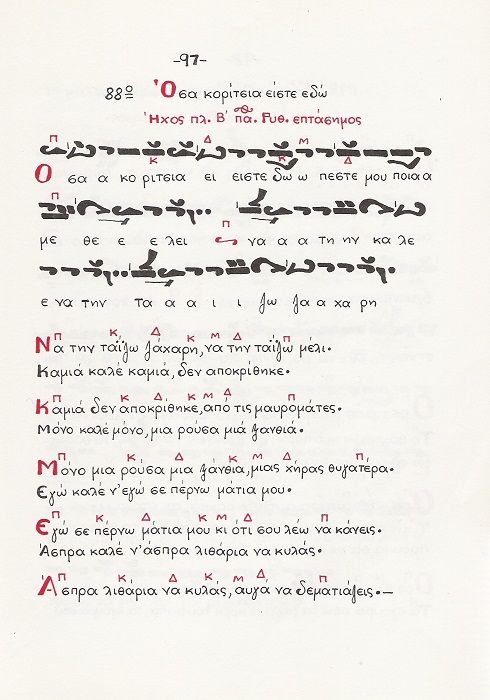 -97-
88ο Ὅσα κορίτσια είστε εδώ
Ἦχος πλ. Β' πα. Ρυθ. επτάσημος
Π Δ Μ
Κ Κ Δ
Ο σα α κο ριτσια ει ειστε δω ω πεστε μου ποια α
Π
με θε ε ε λει Π να α α τη ην κα λε
ε να την τα α α ι ι ζω ζα α χα ρη
Π Κ Δ Κ Μ Δ Π
Να την ταΐζω ζάχαρη, να την ταΐζω μέλι.
Καμιά καλέ καμιά, δεν αποκρίθηκε.
Π Κ Δ Κ Μ Δ Π
Καμιά δεν αποκρίθηκε, από τις μαυρομάτες.
Μόνο καλέ μόνο, μια ρούσα μιά ξανθιά.
Π Κ Δ Κ Μ Δ Π
Μόνο μια ρούσα μια ξάνθια, μιας χήρας θυγατέρα.
Εγώ καλέ ν'εγώ σε πέρνω μάτια μου.
Π Κ Δ Κ Μ Δ Π
Εγώ σε πέρνω μάτια μου κι ότι σου λέω να κάνεις.
Άσπρα καλέ ν'άσπρα λιθάρια να κυλάς.
Π Κ Δ Κ Μ Δ Π
Άσπρα λιθάρια να κυλάς, αυγα να δεματιάζεις.—